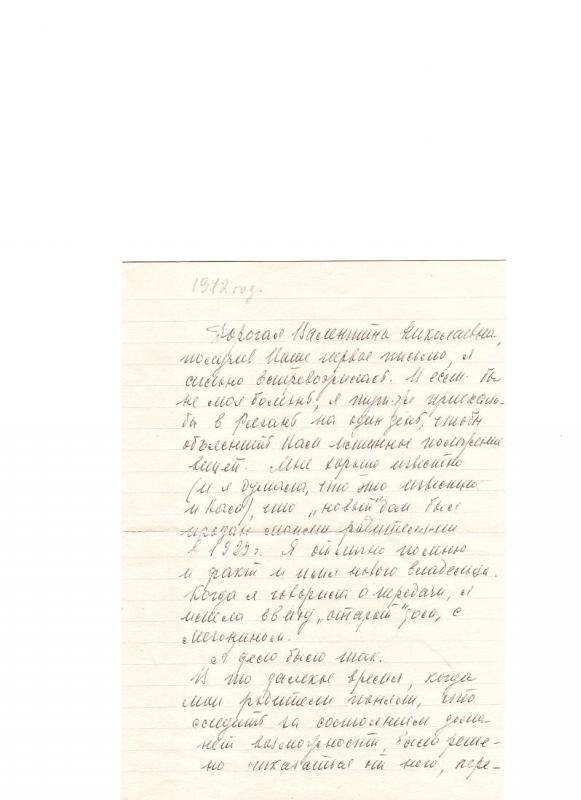 1982 год.
Дорогая Валентина Николаевна,
получив Ваше первое письмо, я
сильно встревожилась. И если бы
не моя болезнь, я тут же приехала
бы в Рязань на один день, чтобы
объяснить Вам истинное положение
вещей. Мне хорошо известно
(и я думала, что это известно
и Вам), что „новый" дом был
продан моими родителями
в 1929 г. Я отлично помню
и факт и имя нового владельца.
Когда я говорила о передаче, я
имела ввиду „старый" дом, с
мезонином.
А дело было так.
В то далекое время, когда
мои родители поняли, что
следить за состоянием дома
нет возможности, было реше-
но отказаться от него, пере-